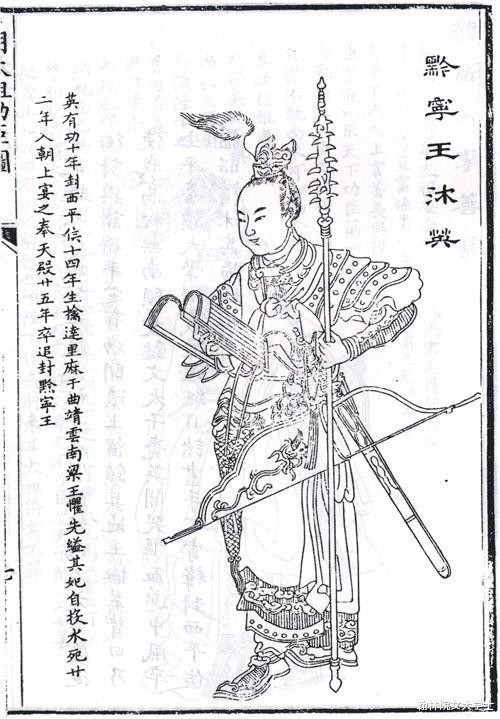 黔寧王沐英
英有功十年封西平侯十四年生擒達里麻于曲靖雲南梁王懼先縊其妃自投水死廿
二年入朝上宴之奉天殿廿五年卒追封黔寧王
明太祖功臣圖
七
翰林院女大学士